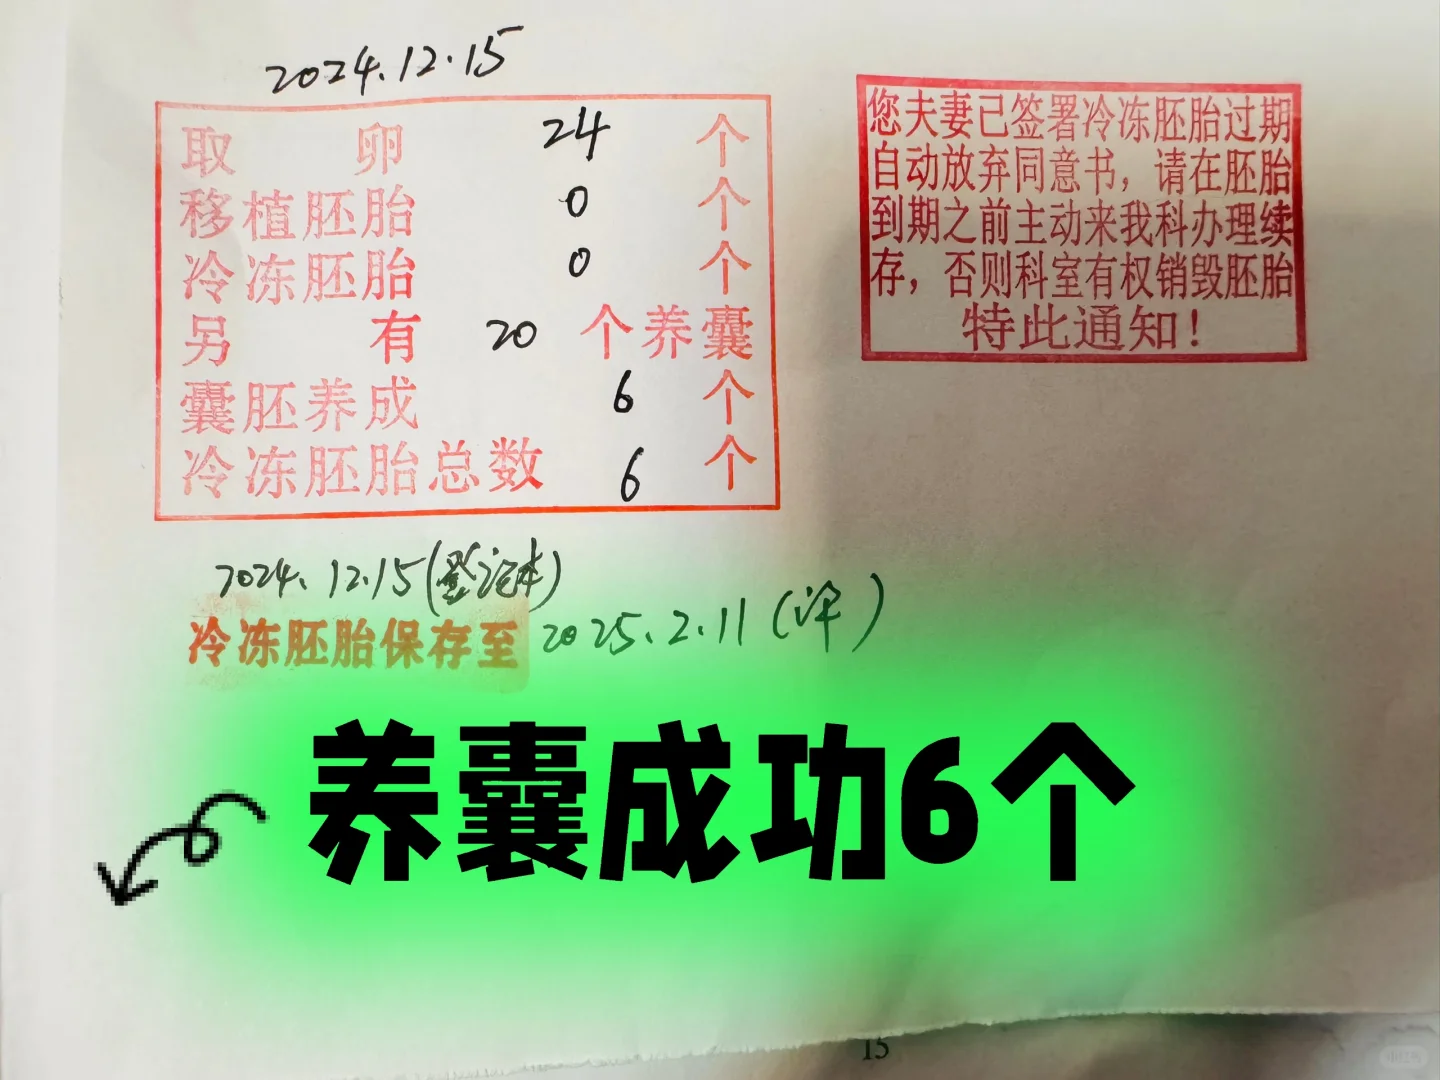 2024.12.15
取卵 24 个
移植胚胎 0 个
冷冻胚胎 0 个
另有 20 个养囊
囊胚养成 6 个
冷冻胚胎总数 6 个
您夫妻已签署冷冻胚胎过期
自动放弃同意书，请在胚胎
到期之前主动来我科办理续
存，否则科室有权销毁胚胎
特此通知！
2024.12.15(登记本)
冷冻胚胎保存至 2025.2.11
养囊成功6个
15
小红书